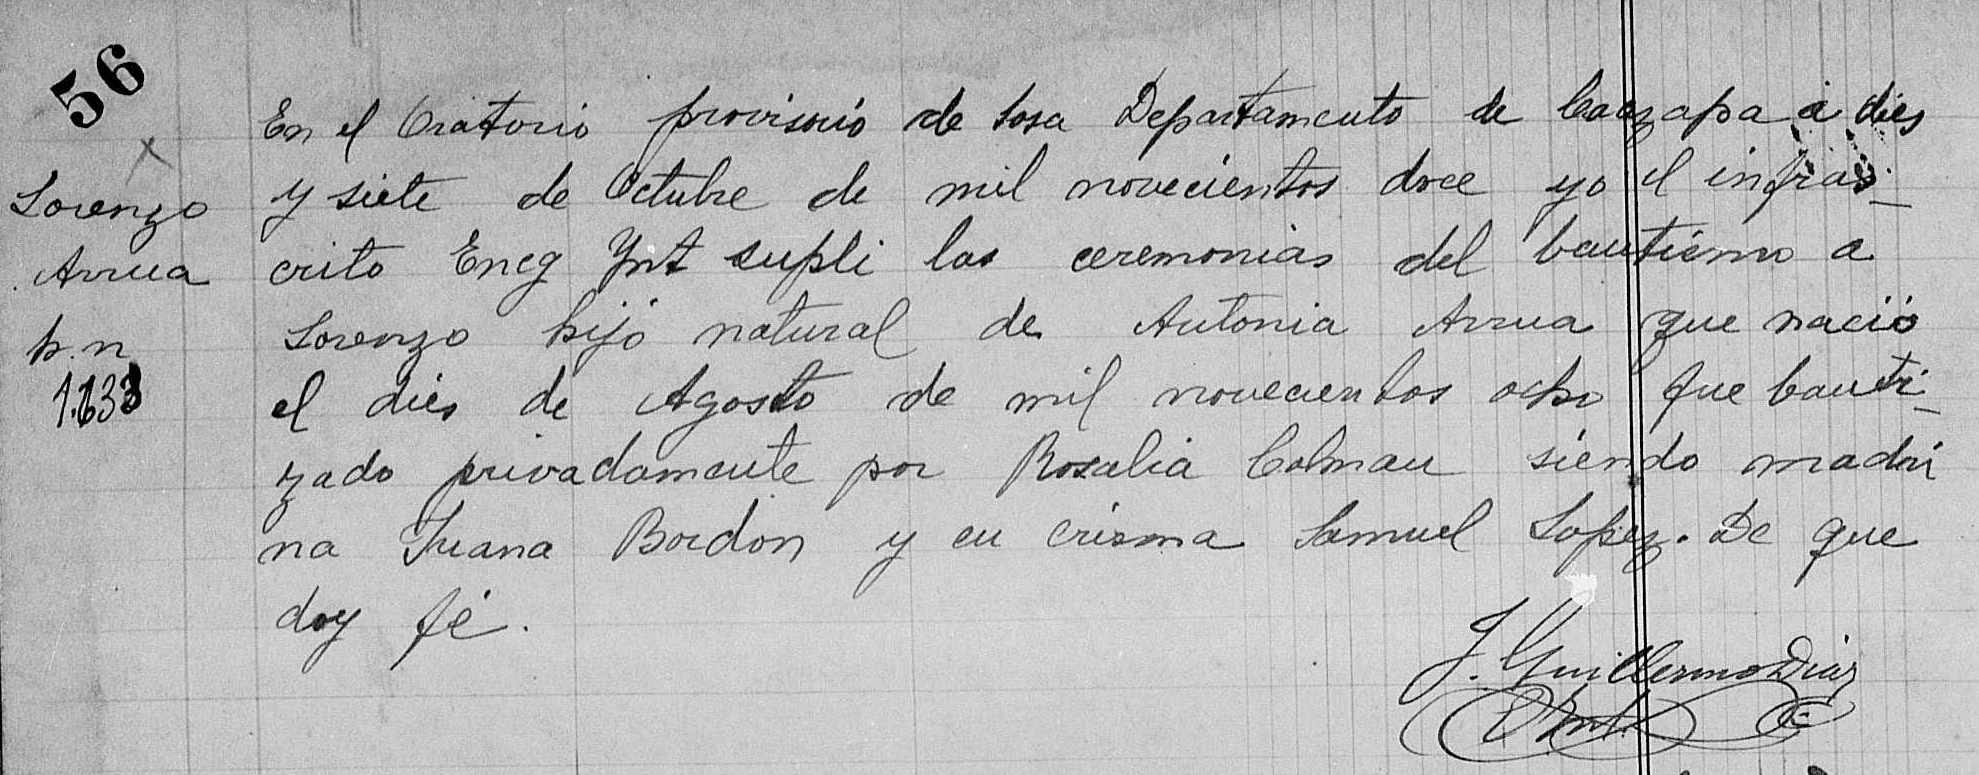 56
Lorenzo
Arrua
h. n
1.633
En el Oratorio provisorio de Sosa Departamento de Caazapa a dies
y siete de Octubre de mil novecientos doce yo el infras-
crito Encg Ynt supli las ceremonias del bautismo a
Lorenzo hijo natural de Antonia Arrua que nació
el dies de Agosto de mil novecientos ocho fue bauti-
zado privadamente por Rosalia Colman siendo madri
na Juana Bordon y en crisma Samuel Lopez. De que
doy fé.
J. Guillermo Diaz